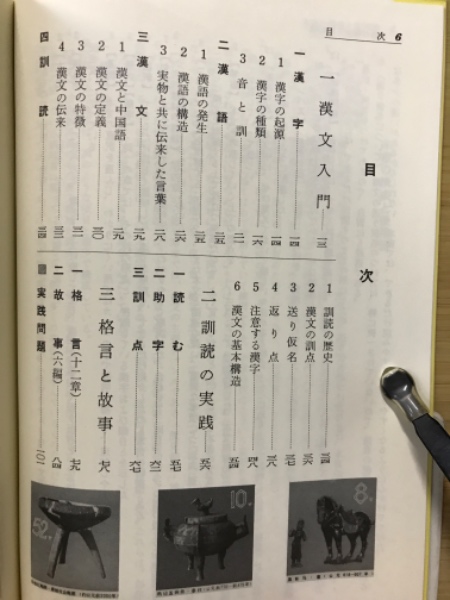 目　次 6
目　次
一 漢文入門 一三
一 漢　字 一四
1 漢字の起源 一四
2 漢字の種類 一六
3 音と訓 二一
二 漢　語 二五
1 漢語の発生 二五
2 漢語の構造 二六
3 実物と共に伝来した言葉 二八
三 漢　文 二九
1 漢文と中国語 二九
2 漢文の定義 三〇
3 漢文の特徴 三一
4 漢文の伝来 三三
四 訓　読 三四
1 訓読の歴史 三四
2 漢文の訓点 三六
3 送り仮名 三七
4 返り点 三八
5 注意する漢字 四八
6 漢文の基本構造 五四
二 訓読の実践 五六
一 読　む 五七
二 助　字 六二
三 訓　点 六七
三 格言と故事 七八
一 格　言(十二章) 七九
二 故　事(六編) 八四
実践問題 一〇一
8.
10.
52.